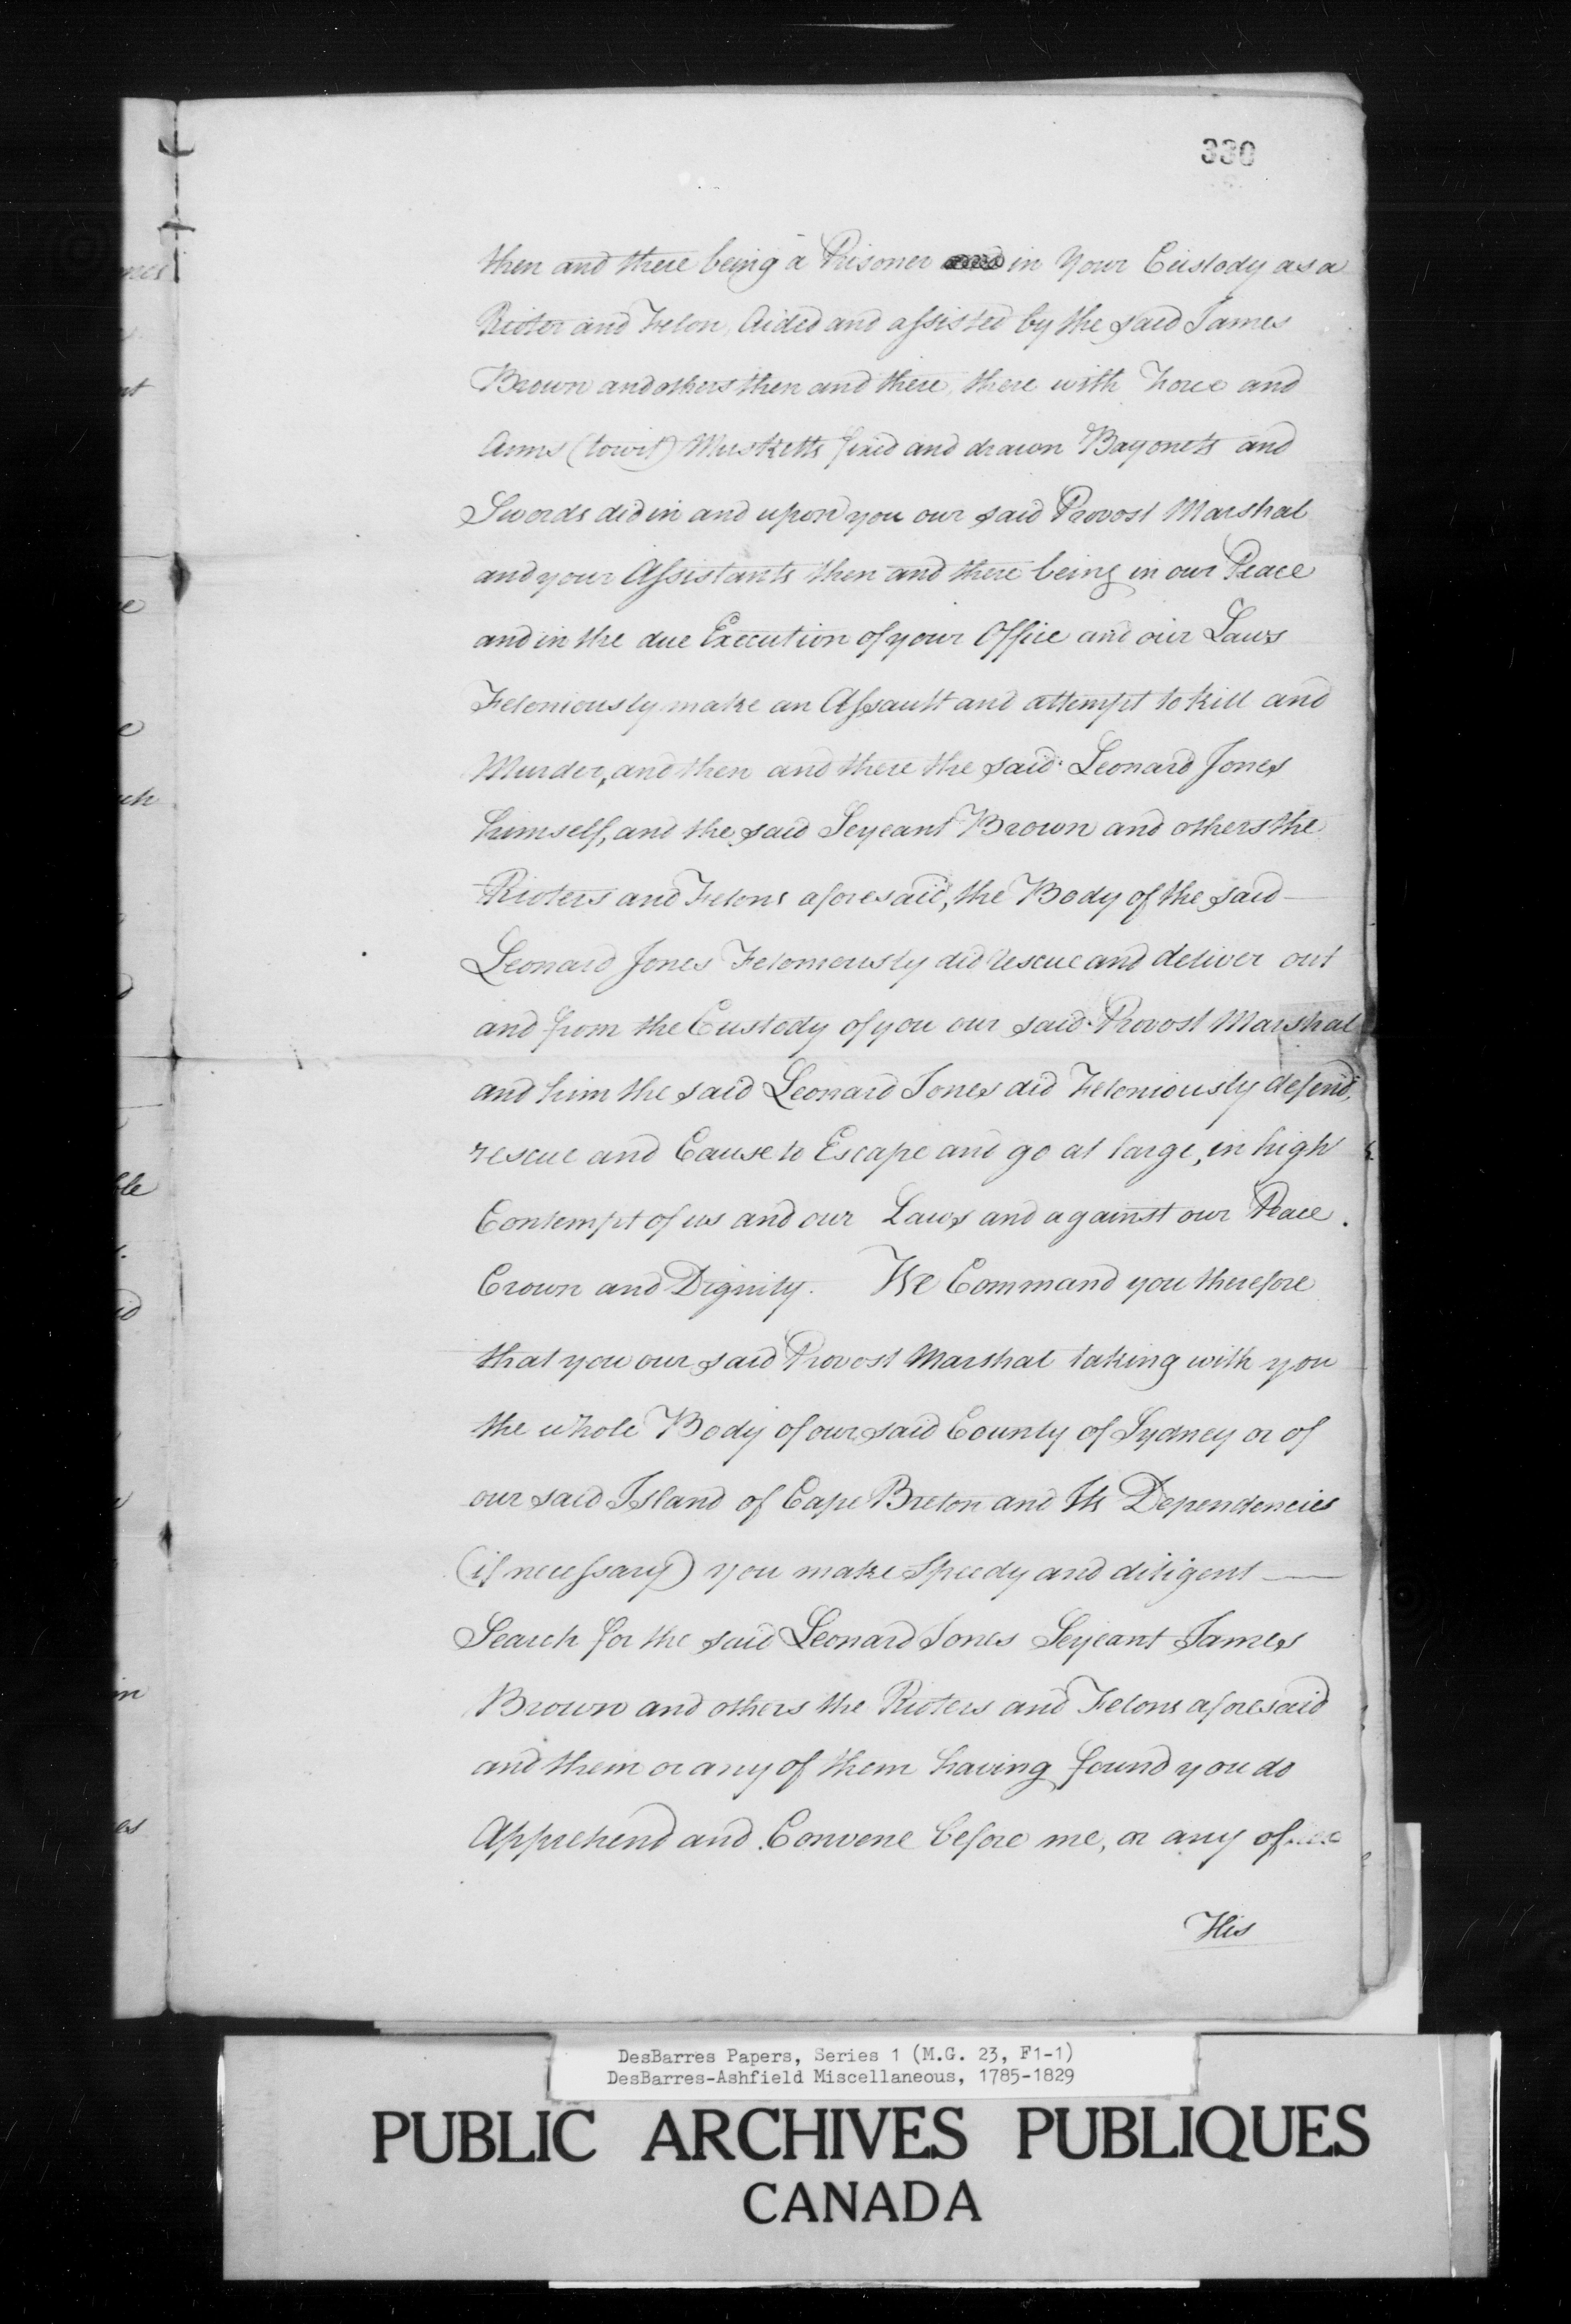 330
then and there being a Prisoner in Your Custody as a
Rioter and Felon, Aided and assisted by the said James
Brown and others then and there, there with Force and
Arms (towit) Musketts fixed and drawn Bayonets and
Swords did in and upon you our said Provost Marshal
and your Assistants then and there being in our Peace
and in the due Execution of your Office and our Laws
Feloniously make an Assault and attempt to kill and
Murder, and then and there the said Leonard Jones
himself, and the said Serjeant Brown and others the
Rioters and Felons aforesaid, the Body of the said
Leonard Jones Feloniously did rescue and deliver out
and from the Custody of you our said Provost Marshal
and him the said Leonard Jones did Feloniously defend,
rescue and Cause to Escape and go at large, in high
Contempt of us and our Laws and against our Peace.
Crown and Dignity. We Command you therefore
that you our said Provost Marshal taking with you
the whole Body of our said County of Sydney or of
our said Island of Cape Breton and Its Dependencies
(if necessary) you make Speedy and diligent
Search for the said Leonard Jones Serjeant James
Brown and others the Rioters and Felons aforesaid
and them or any of them having found you do
Apprehend and Convene before me, or any of
His
nces
nt
e
e
ch
ble
id
in
es
DesBarres Papers, Series 1 (M.G. 23, F1-1)
DesBarres-Ashfield Miscellaneous, 1785-1829
PUBLIC ARCHIVES PUBLIQUES
CANADA